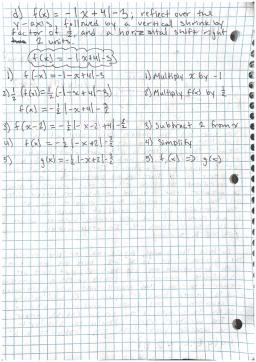 d) f(x) = -|x+4|-3, reflect over the
y-axis, followed by a vertical shrink by
factor of ½, and a horizontal shift right
2 units.
f(x) = -|x+4|-3
1) f(-x) = -|-x+4|-3 1) Multiply x by -1
2) ½ (f(x)) = ½(-|-x+4|-3) 2) Multiply f(x) by ½
f(x) = -½|-x+4|-3/2
3) f(x-2) = -½|-x-2+4|-3/2 3) Subtract 2 from x
4) f(x) = -½|-x+2|-3/2 4) Simplify
5) g(x) = -½|-x+2|-3/2 5) f(x) => g(x)